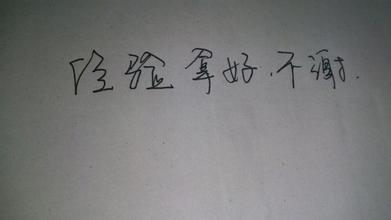 经验拿好.不谢.